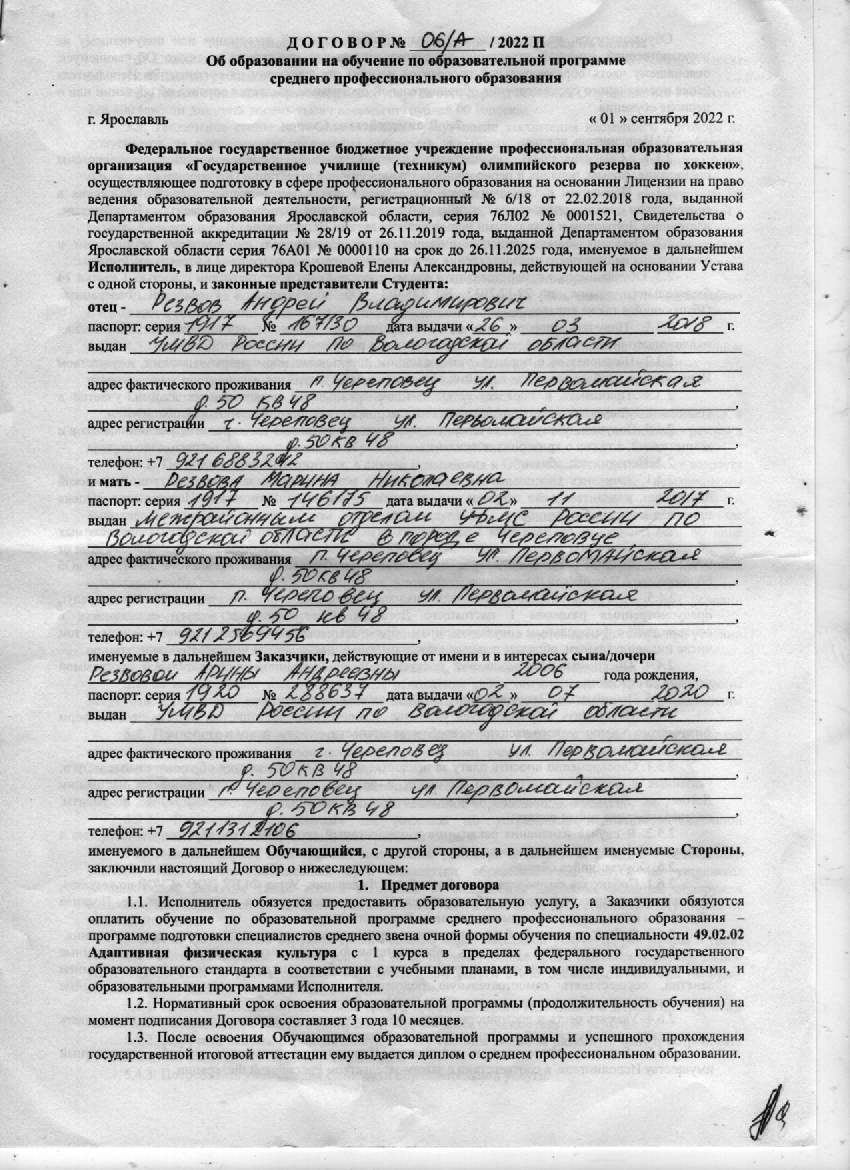 Д О Г О В О Р № 06/А / 2022 П
Об образовании на обучение по образовательной программе
среднего профессионального образования
г. Ярославль « 01 » сентября 2022 г.
Федеральное государственное бюджетное учреждение профессиональная образовательная
организация «Государственное училище (техникум) олимпийского резерва по хоккею»,
осуществляющее подготовку в сфере профессионального образования на основании Лицензии на право
ведения образовательной деятельности, регистрационный № 6/18 от 22.02.2018 года, выданной
Департаментом образования Ярославской области, серия 76Л02 № 0001521, Свидетельства о
государственной аккредитации № 28/19 от 26.11.2019 года, выданной Департаментом образования
Ярославской области серия 76А01 № 0000110 на срок до 26.11.2025 года, именуемое в дальнейшем
Исполнитель, в лице директора Крошевой Елены Александровны, действующей на основании Устава
с одной стороны, и законные представители Студента:
отец - Резвов Андрей Владимирович
паспорт: серия 1917 № 167130 дата выдачи « 26 » 03 2018 г.
выдан УМВД России по Вологодской области
адрес фактического проживания г. Череповец ул. Первомайская
д. 50 кв 48,
адрес регистрации г. Череповец ул. Первомайская
д. 50 кв 48,
телефон: +7
и мать - Резвова Марина Николаевна
паспорт: серия 1917 № 146175 дата выдачи « 02 » 11 2017 г.
выдан Межрайонным отделом УФМС России по
Вологодской области в городе Череповце
адрес фактического проживания г. Череповец ул. Первомайская
д. 50 кв 48,
адрес регистрации г. Череповец ул. Первомайская
д. 50 кв 48,
телефон: +7 9212569456,
именуемые в дальнейшем Заказчики, действующие от имени и в интересах сына/дочери
Резвовой Арины Андреевны 2006 года рождения,
паспорт: серия 1920 № 288637 дата выдачи « 02 » 07 2020 г.
выдан УМВД России по Вологодской области
адрес фактического проживания г. Череповец ул. Первомайская
д. 50 кв 48,
адрес регистрации г. Череповец ул. Первомайская
д. 50 кв 48,
телефон: +7 9211312106,
именуемого в дальнейшем Обучающийся, с другой стороны, а в дальнейшем именуемые Стороны,
заключили настоящий Договор о нижеследующем:
1. Предмет договора
1.1. Исполнитель обязуется предоставить образовательную услугу, а Заказчики обязуются
оплатить обучение по образовательной программе среднего профессионального образования –
программе подготовки специалистов среднего звена очной формы обучения по специальности 49.02.02
Адаптивная физическая культура с 1 курса в пределах федерального государственного
образовательного стандарта в соответствии с учебными планами, в том числе индивидуальными, и
образовательными программами Исполнителя.
1.2. Нормативный срок освоения образовательной программы (продолжительность обучения) на
момент подписания Договора составляет 3 года 10 месяцев.
1.3. После освоения Обучающимся образовательной программы и успешного прохождения
государственной итоговой аттестации ему выдается диплом о среднем профессиональном образовании.